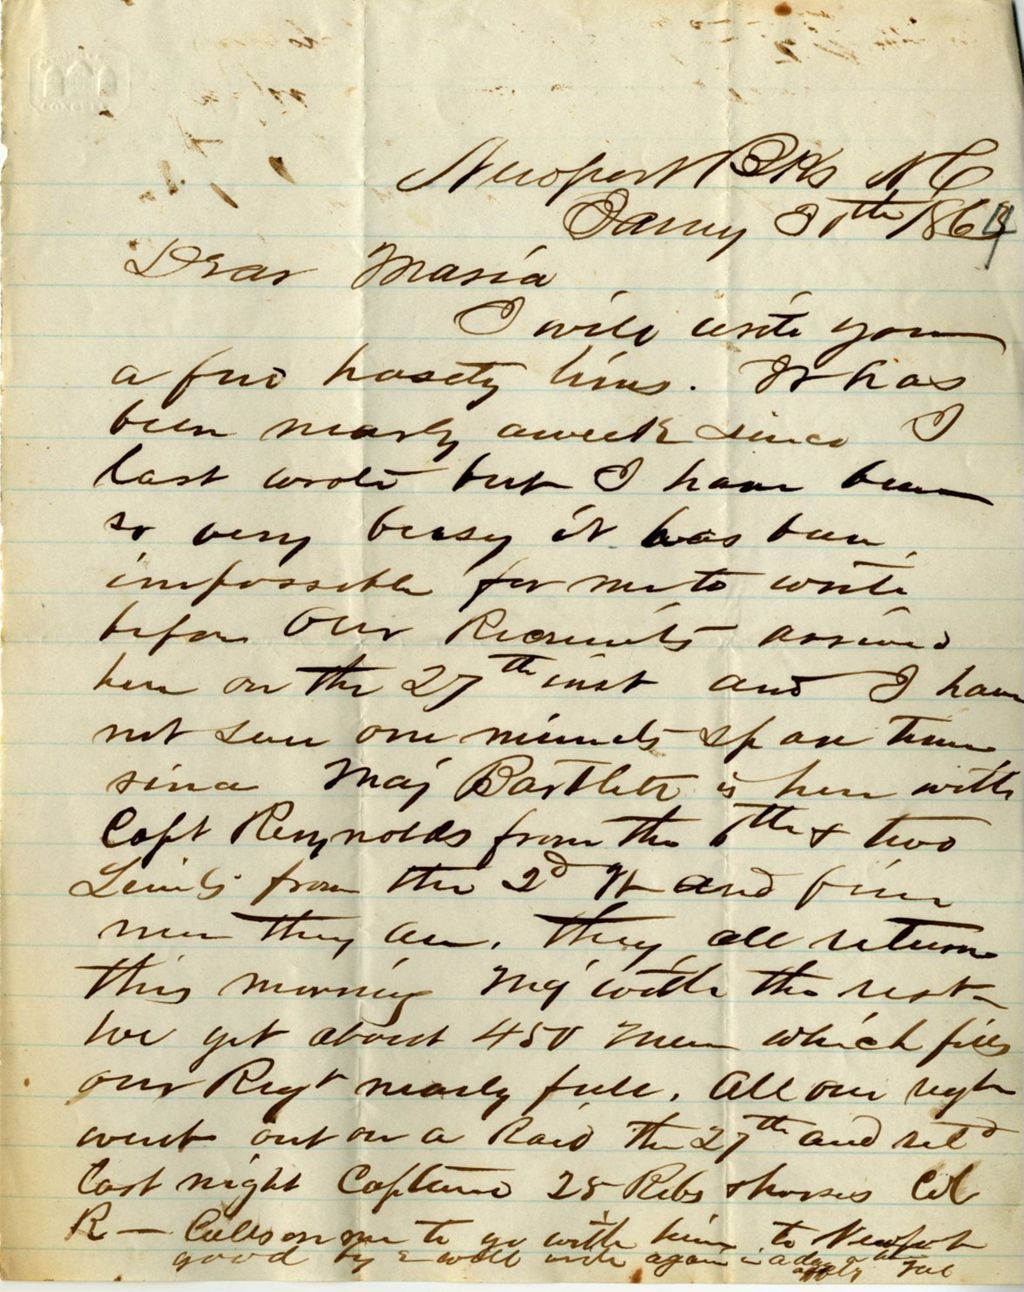 Newport Bks N C
Jany 30th 1864
Dear Maria
I will write you
a few hasety lines. It has
been nearly aweek since I
last wrote but I have been
so very busy it has been
impossible for me to write
before Our Recruits arrived
here on the 27th inst and I have
not seen one minuets spare time
since Maj Bartlett is here with
Capt Reynolds from the 6th & two
Leiuts from the 2d and fine
men they are. they all return
this morning Maj with the rest
We get about 450 Men which fills
our Regt nearly full. All our regt
went out on a Raid the 27th and retd
last night Capturd 25 Rebs & horses Col
R— Calls on me to go with him to Newport
good by I will write again in a day